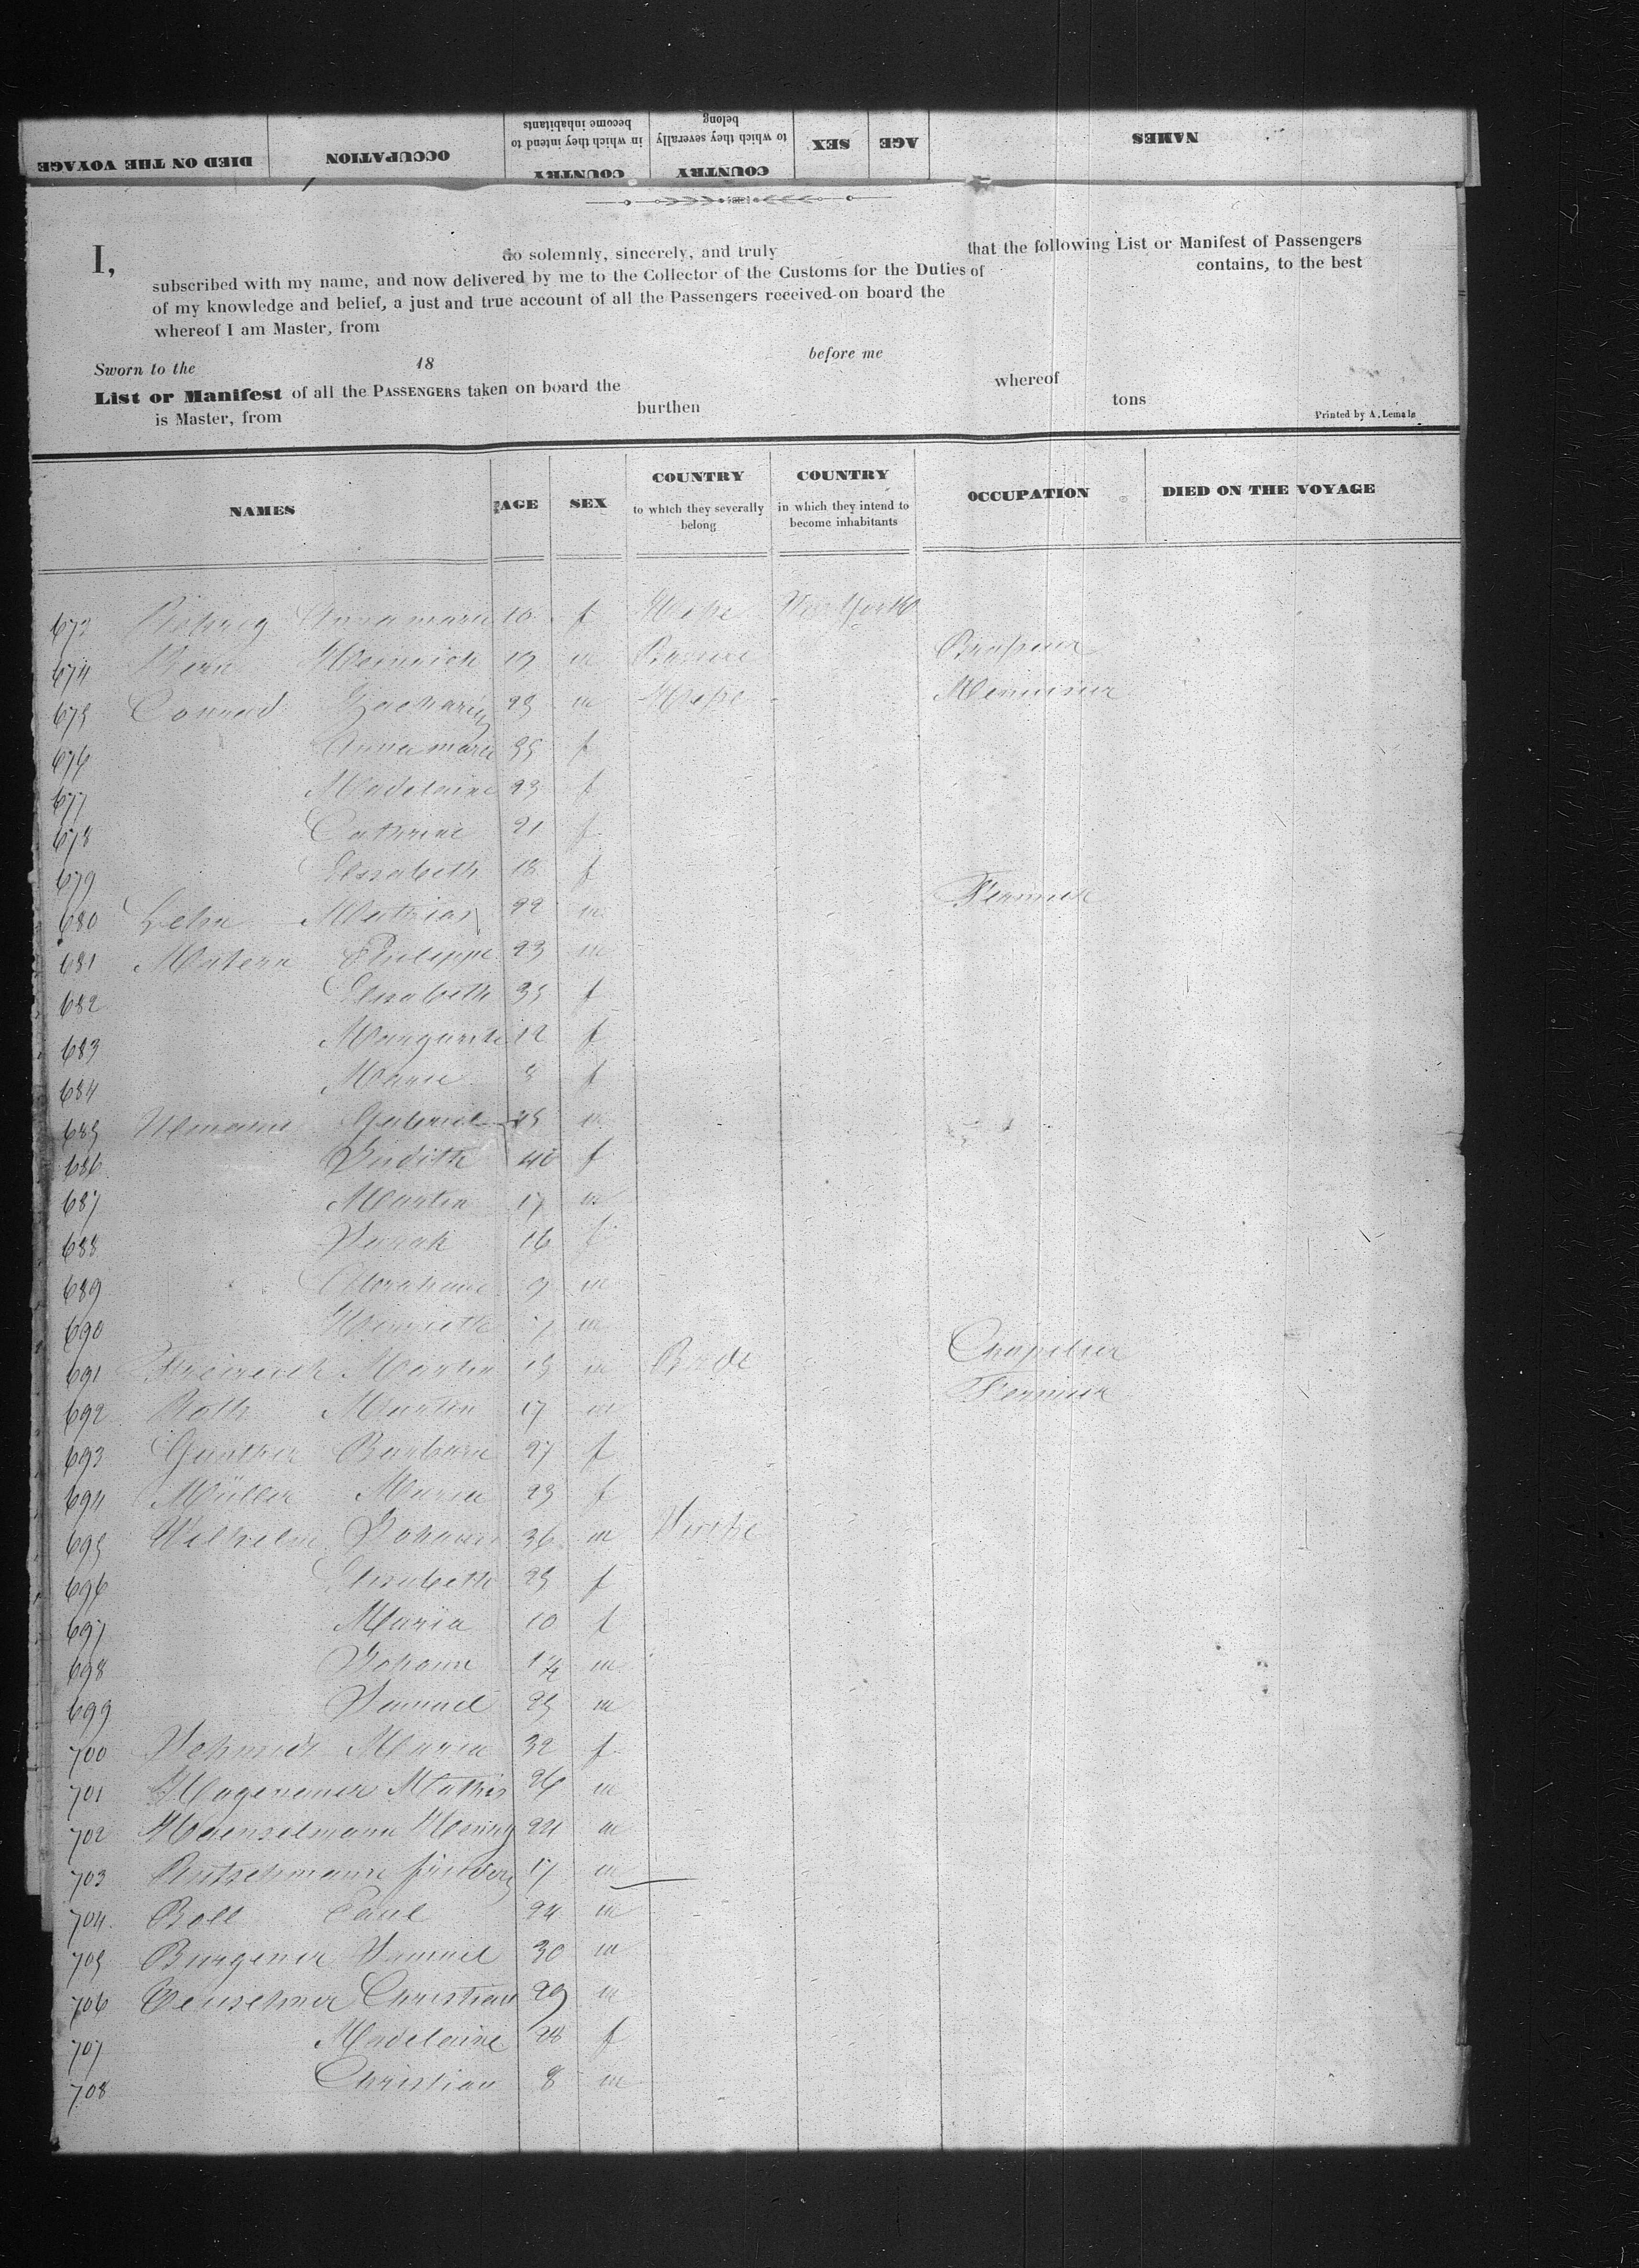 NAMES AGE SEX COUNTRY to which they severally belong COUNTRY in which they intend to become inhabitants OCCUPATION DIED ON THE VOYAGE
I, do solemnly, sincerely, and truly that the following List or Manifest of Passengers
subscribed with my name, and now delivered by me to the Collector of the Customs for the Duties of contains, to the best
of my knowledge and belief, a just and true account of all the Passengers received on board the
whereof I am Master, from
Sworn to the 18 before me
List or Manifest of all the PASSENGERS taken on board the whereof
is Master, from burthen tons
Printed by A. Lemale
NAMES AGE SEX COUNTRY to which they severally belong COUNTRY in which they intend to become inhabitants OCCUPATION DIED ON THE VOYAGE
673 Anna marie 10 f Hesse New York
674 Heinrich 19 m Brasseur
675 Conrad Zacharig 23 m Hesse Menuisier
676 Anna marie 35 f
677 Madelaine 23 f
678 Cathrine 21 f
679 Elisabeth 18 f
680 Lehn Mathias 22 m Fermier
681 Matern Philippe 23 m
682 Elisabeth 35 f
683 Margarite 12 f
684 Marie 8 f
685 Gabriel 45 m
686 Judith 40 f
687 Martin 17 m
688 Sarah 16 f
689 Abraham 9 m
690 7 m
691 Martin 19 m Bade Chapelier
692 Roth Martin 17 m Fermier
693 Gunther Barbara 27 f
694 Müller Maria 23 f
695 Wilhelm Johann 36 m
696 Elisabeth 25 f
697 Maria 10 f
698 Johann m
699 Samuel 25 m
700 Schmidt Maria 32 f
701 Mathis 26 m
702 Haenselmann Henry 24 m
703 17 m
704 Boll Paul 24 m
705 Burgener Samuel 30 m
706 Christian 29 m
707 Madelaine 28 f
708 Christian 8 m